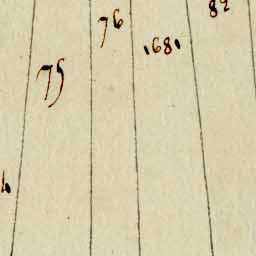 82
76
1681
75